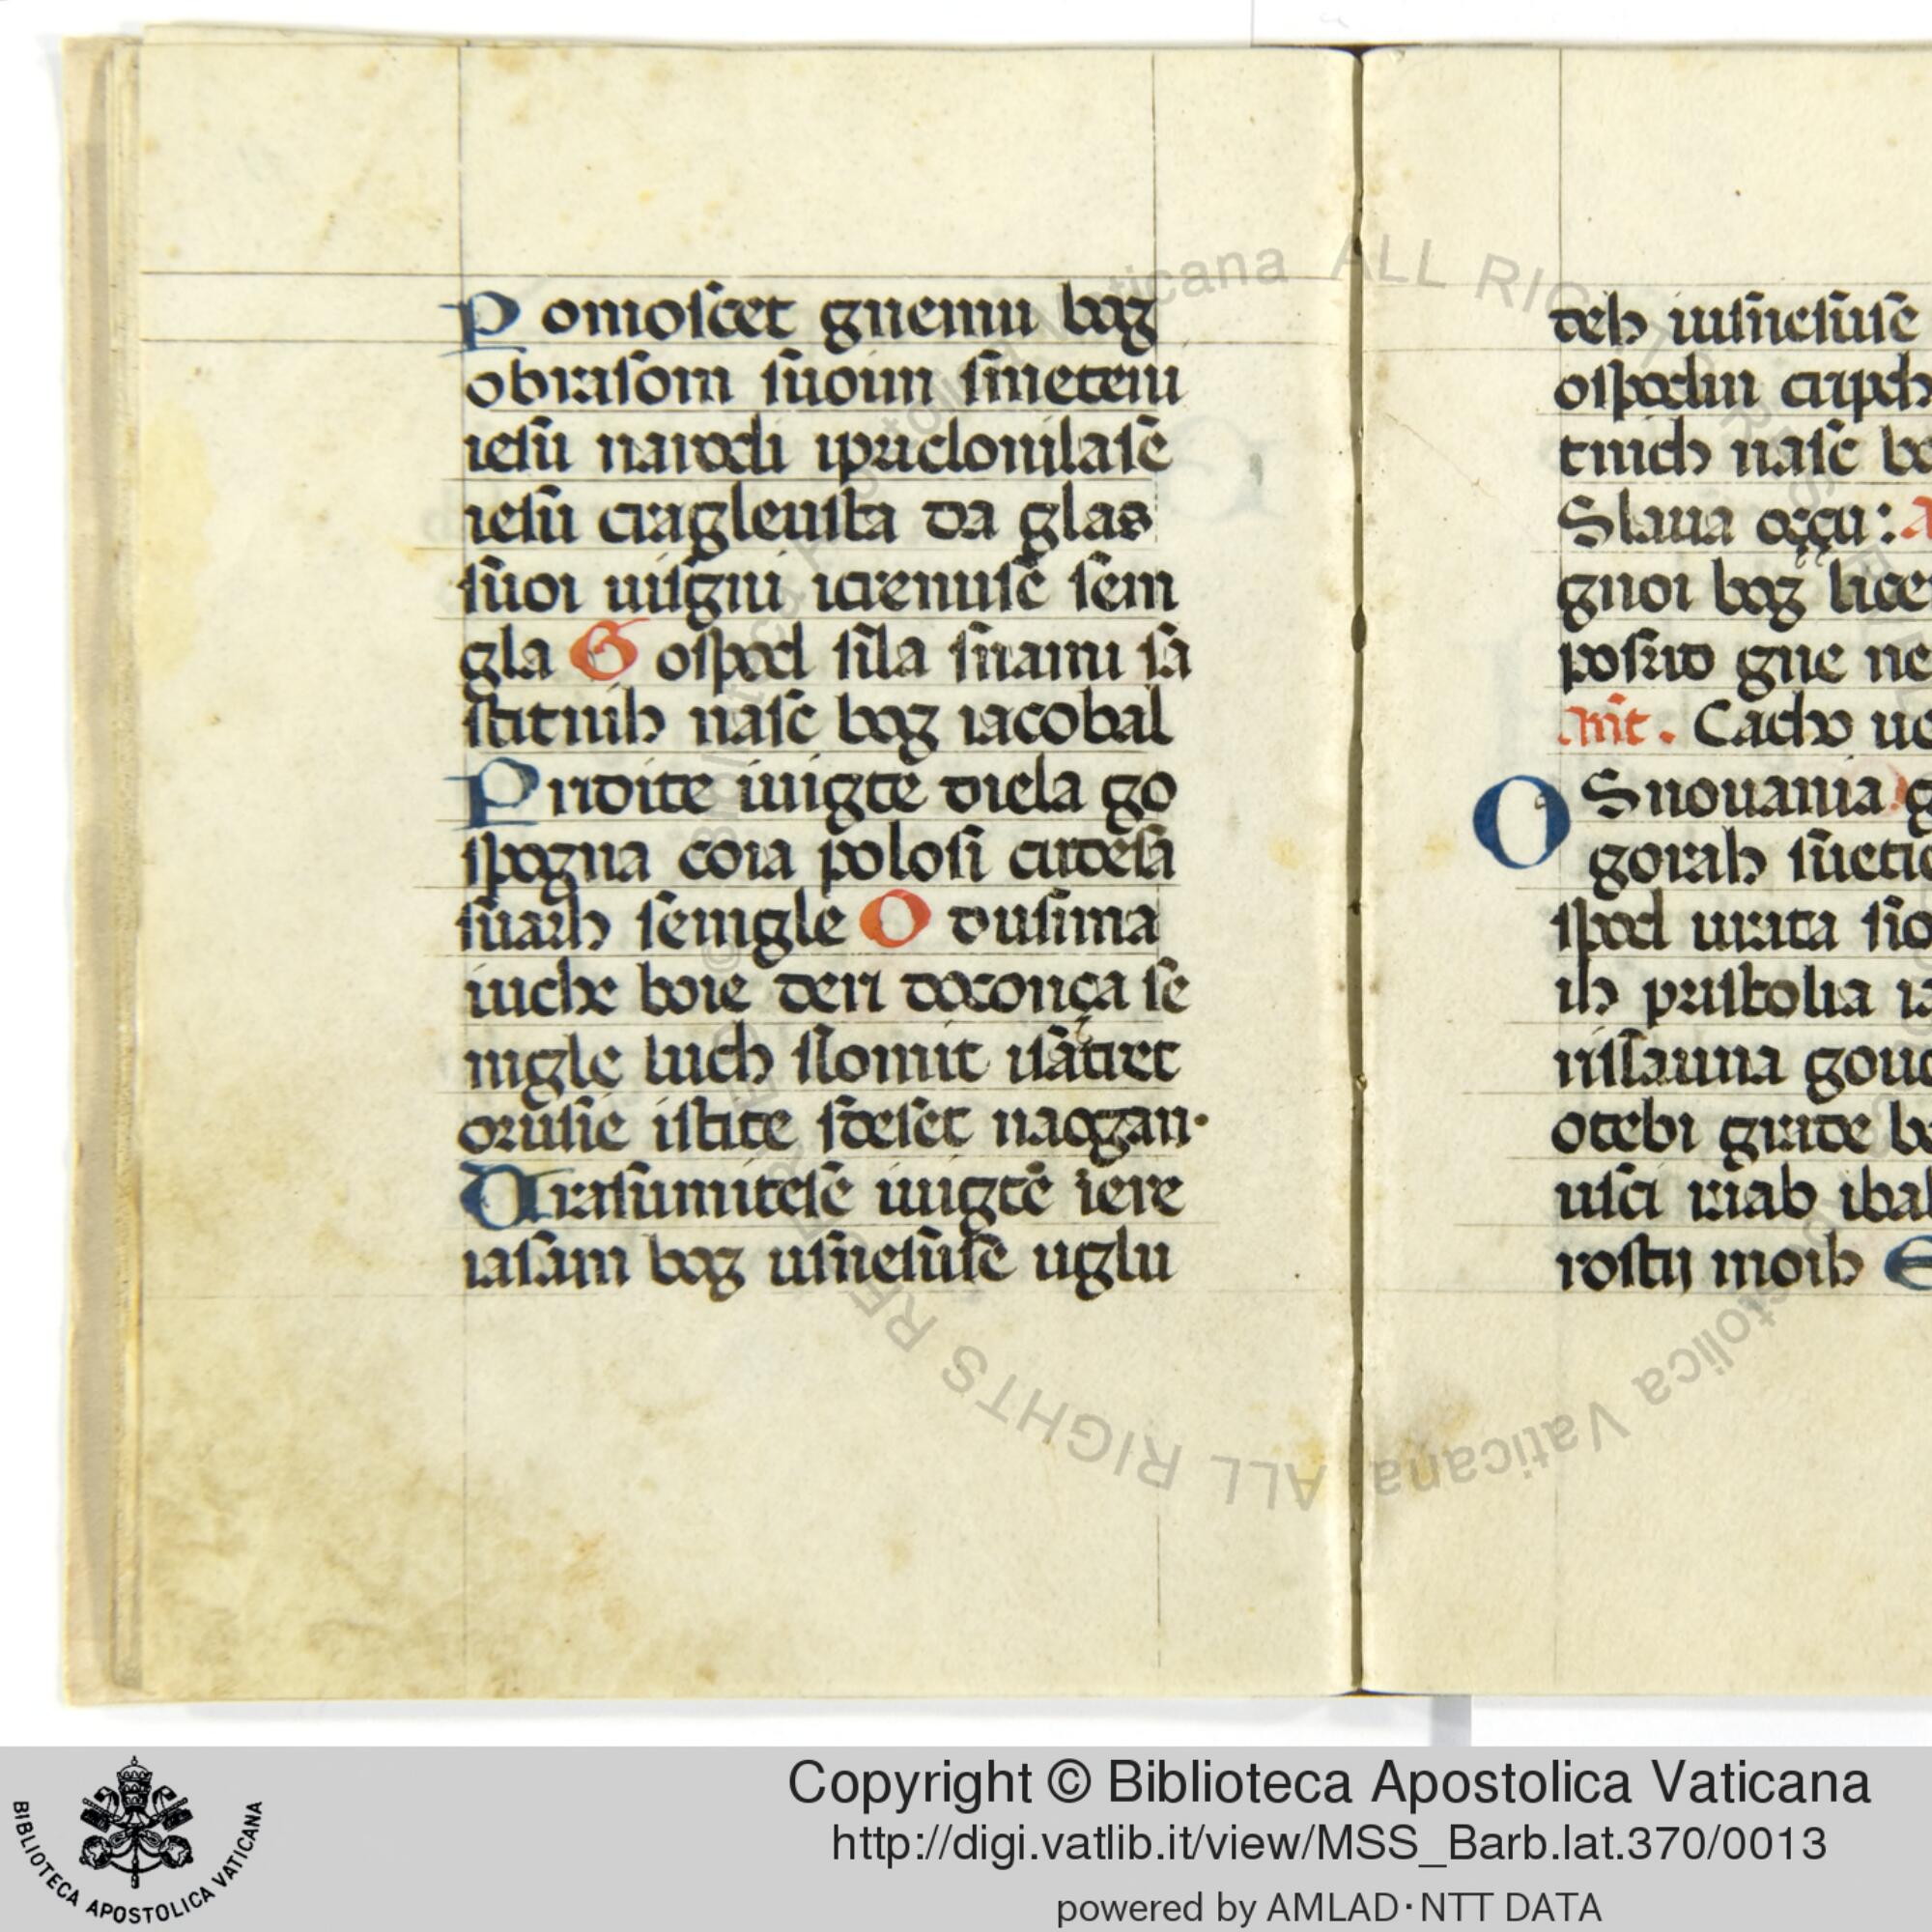 Pomoſcet gnemu bog
obraſom ſuoim ſmeteni
ieſu narodi ipricloniłaſe
ieſu craglieuſta da glas
ſuoi uiſgni icrenuiſe ſem
gla Goſpod ſila ſnami ſa
ſtitnih naſc bog iacobal
Pridite iuigte diela go
ſpogna coia poloſi cudeſa
ſuarh ſemgle Oduſima
iuche boie deri doconça ſe
mgle luch ſlomit iſatret
oruſie iſtite ſceſet naogan·
Oraſumiteſe iuigte iere
iaſam bog uſneſuſe uglu
deh iuſneſuſe
oſpodin cripch
tnich naſc bo
Slaua oççu: a
gnoi bog lice
poſrid gne ne
Ant. Cacho ue
OSnouania g
gorah ſuetie
ſpod urata ſio
ih priſtolia ia
niſlauna gouo
otebi gride bo
uſci riab ibal
roſtij moih E
Copyright © Biblioteca Apostolica Vaticana
http://digi.vatlib.it/view/MSS_Barb.lat.370/0013
powered by AMLAD·NTT DATA
BIBLIOTECA APOSTOLICA VATICANA